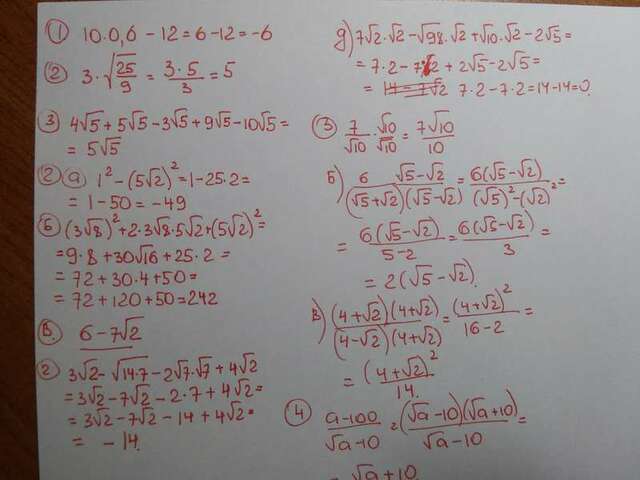 ① 10·0,6 - 12 = 6 - 12 = -6
② 3·√(25/9) = (3·5)/3 = 5
③ 4√5 + 5√5 - 3√5 + 9√5 - 10√5 =
= 5√5
② а 1² - (5√2)² = 1 - 25·2 =
= 1 - 50 = -49
б (3√8)² + 2·3√8·5√2 + (5√2)² =
= 9·8 + 30√16 + 25·2 =
= 72 + 30·4 + 50 =
= 72 + 120 + 50 = 242
В. 6 - 7√2
② 3√2 - √(14·7) - 2√7·√7 + 4√2
= 3√2 - 7√2 - 2·7 + 4√2 =
= 3√2 - 7√2 - 14 + 4√2 =
= -14.
д) 7√2·√2 - √98·√2 + √10·√2 - 2√5 =
= 7·2 - 7·2 + 2√5 - 2√5 =
= 14 - 7√2 7·2 - 7·2 = 14 - 14 = 0.
③ 7/√10 · √10/√10 = 7√10/10
Б) 6 (√5 - √2)/((√5 + √2)(√5 - √2)) = 6(√5 - √2)/((√5)² - (√2)²) =
= 6(√5 - √2)/(5 - 2) = 6(√5 - √2)/3 =
= 2(√5 - √2).
В) (4 + √2)(4 + √2)/((4 - √2)(4 + √2)) = (4 + √2)²/(16 - 2) =
= (4 + √2)²/14.
④ (a - 100)/(√a - 10) = (√a - 10)(√a + 10)/(√a - 10) =
= √a + 10